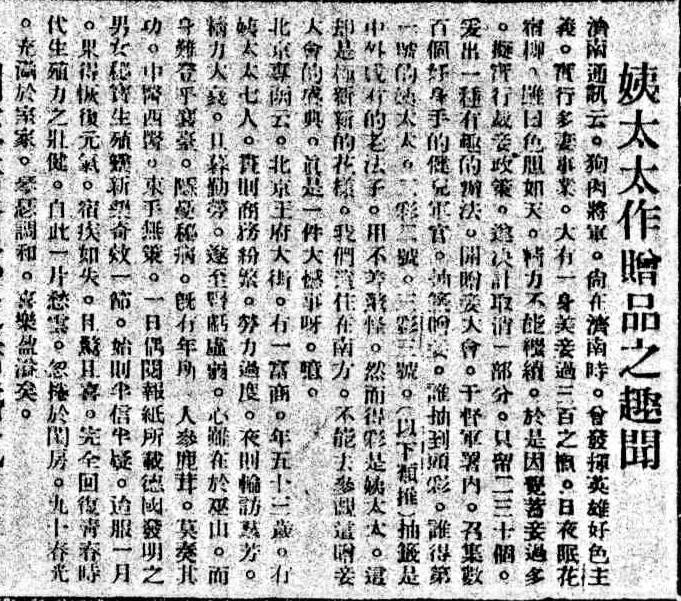 姨太太作贈品之趣聞
濟南通訊云。狗肉將軍。尙在濟南時。曾發揮英雄好色主
義。實行多妻事業。大有一身美妾過三百之慨。日夜眠花
宿柳。雖曰色胆如天。精力不能繼續。於是因覺蓄妾過多
。擬實行裁妾政策。遂決計取消一部分。只留二三十個。
爰出一種有趣的辦法。開贈妾大會。于督軍署內。召集數
百個好身手的健兒軍官。抽籤贈妾。誰抽到頭彩。誰得第
一號的姨太太。二彩二號。三彩三號。(以下類推)抽籤是
中外或有的老法子。用不着驚怪。然而得彩是姨太太。這
却是極新新的花樣。我們遠住在南方。不能去參觀這贈妾
大會的盛典。眞是一件大憾事呀。噫。
北京專函云。北京王府大街。有一富商。年五十三歲。有
姨太太七人。晝則商務紛繁。勞力過度。夜則輪訪羣芳。
精力大衰。且暮勤勞。遂至腎虧虛弱。心雖在於巫山。而
身難登乎襄臺。隱憂秘病。旣有年所。人參鹿茸。莫奏其
功。中醫西醫。束手無策。一日偶閱報紙所載德國發明之
男女秘寶生殖靈新藥奇效一節。始則半信半疑。迨服一月
。果得恢復元氣。宿疾如失。且驚且喜。完全回復靑春時
代生殖力之壯健。自此一片愁雲。忽捲於閨房。九十春光
。充滿於室家。琴瑟調和。喜樂盈溢矣。